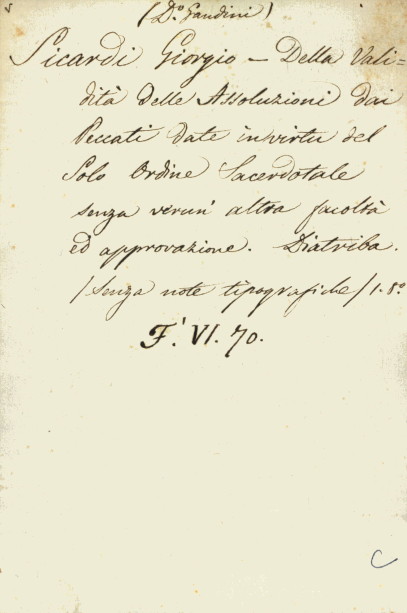 (D.º Gandini)
Sicardi Giorgio — Della Vali=
dità delle Assoluzioni dai
Peccati date in virtù del
Solo Ordine Sacerdotale
senza verun' altra facoltà
ed approvazione. Diatriba.
/ Senza note tipografiche / 1. 8.º
F.' VI. 70.
C